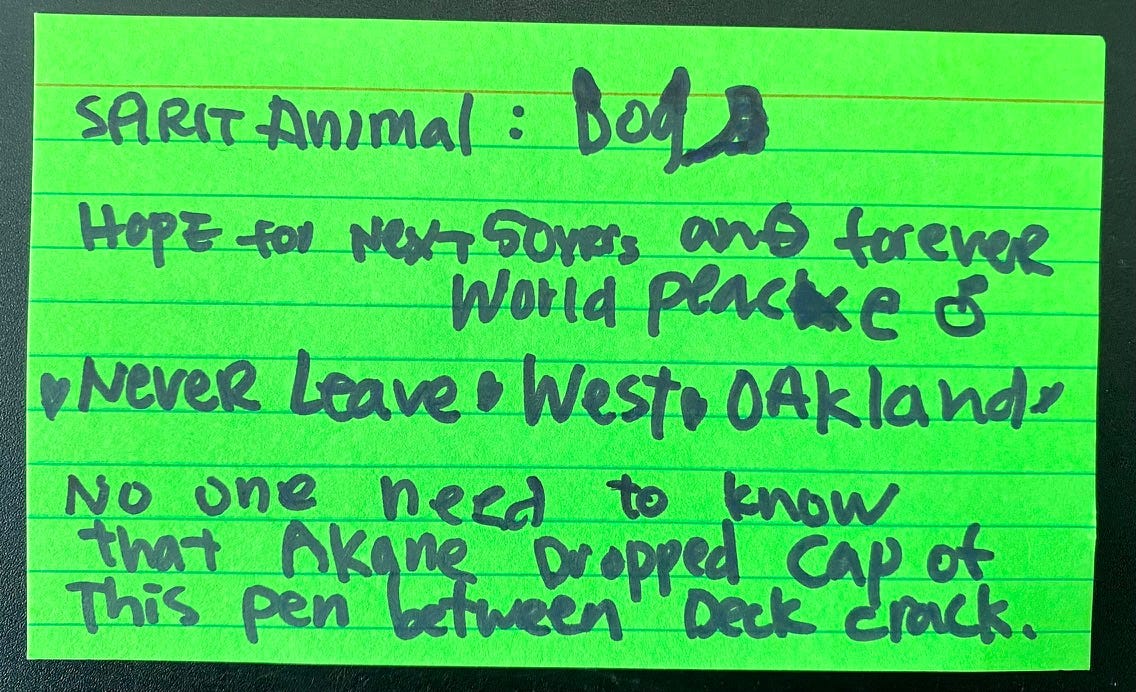 SPIRIT Animal : Dog
HOPE for NEXT 50yers and forever
World peace
NEVER Leave West OAkland
No one need to know
that Akane Dropped cap of
This pen between Deck crack.